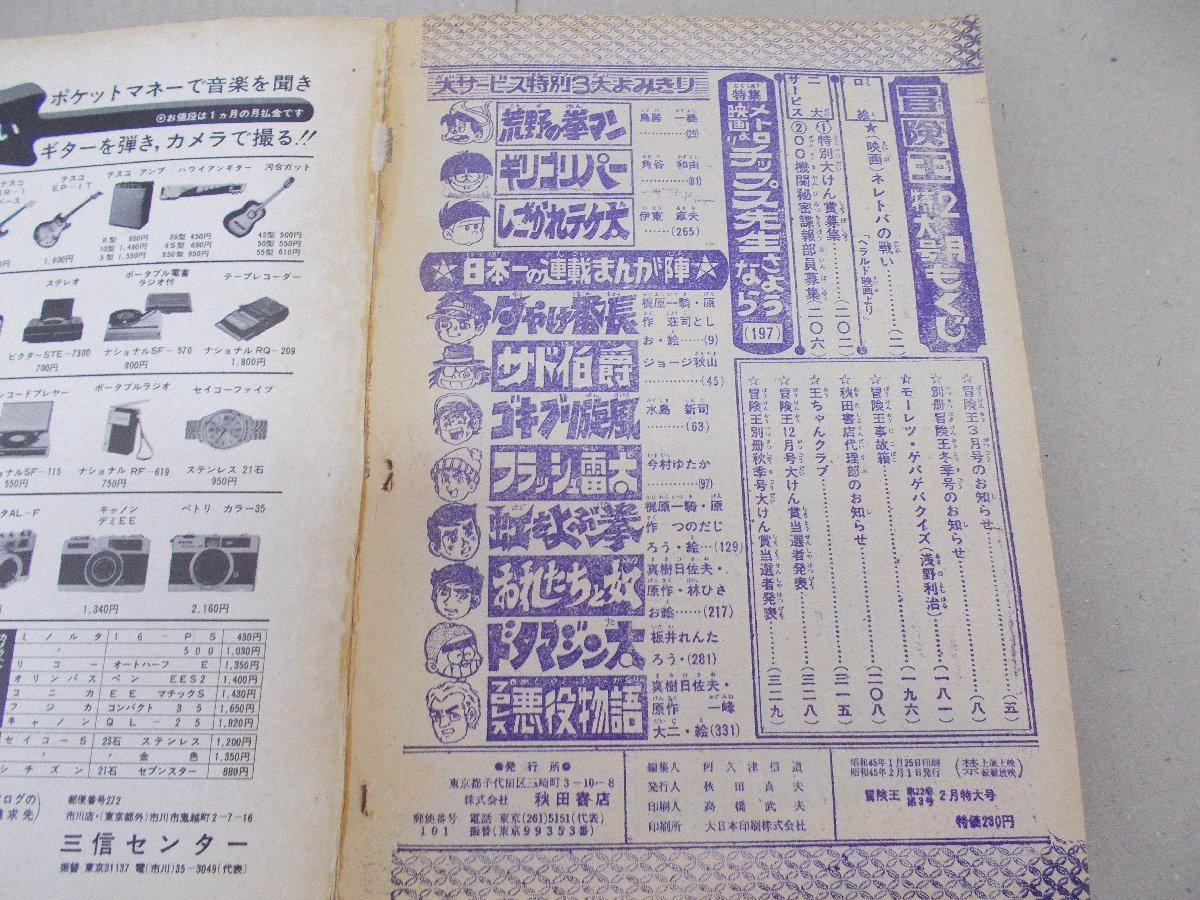 ポケットマネーで音楽を聞き
◎お値段は1ヵ月の月払金です
ギターを弾き,カメラで撮る!!
い
テスコ
EP-1T
テスコ アンプ
ハワイアンギター
河合ガット
1,600円
8型 950円
10型 1,490円
5型 1,550円
S9型 450円
6S型 690円
850型 950円
45型 500円
50型 550円
55型 610円
ステレオ
ポータブル電蓄
ラジオ付
テープレコーダー
ビクターSTE-7300
700円
ナショナルSF-570
800円
ナショナル RQ-209
1,800円
コードプレヤー
ポータブルラジオ
セイコーファイブ
ナルSF-115
550円
ナショナル RF-619
750円
ステンレス 21石
950円
タAL-F
キャノン
デミEE
ペトリ カラー35
1,340円
2,160円
ミノルタ 16-PS 480円
〃 500 1,030円
リコー オートハーフ E 1,350円
オリンパス ペン EES2 1,400円
コニカ EE マチックS 1,430円
フジカ コンパクト 35 1,650円
キャノン QL-25 1,820円
セイコー5 23石 ステンレス 1,200円
〃 〃 金色 1,350円
シチズン 21石 セブンスター 880円
ログの
求先)
郵便番号272
市川店・(東京都外)市川市鬼越町2-7-16
三信センター
振替 東京31137 電(市川)35-3049(代表)
冒険王2月特大号もくじ
口絵★(映画)ネレトバの戦い……(二)
「ヘラルド映画」より
二大 ①特別大けん賞募集……(二〇二)
サービス ②００機関秘密諜報部員募集(二〇六)
特集
メトロ映画より
チップス先生さようなら
(197)
☆冒険王3月号のお知らせ……(五)
☆別冊冒険王冬季号のお知らせ……(八)
モーレツ・ゲバゲバクイズ(浅野利治)……(一八一)
☆冒険王事故箱……(一九六)
☆秋田書店代理部のお知らせ……(二〇八)
☆王ちゃんクラブ……(三一五)
☆冒険王12月号大けん賞当選者発表……(三二八)
☆冒険王別冊秋季号大けん賞当選者発表…(三二九)
大サービス特別3大よみきり
荒野の拳マン
鳥居 一義
(29)
ギリゴリパー
角谷 和由
(81)
しごかれテケ太
伊東 章夫
(265)
★日本一の連載まんが陣★
夕やけ番長
梶原一騎・原
作 荘司とし
お・絵……(9)
ザ・ド伯爵
ジョージ秋山
……(45)
ゴキブリ旋風
水島 新司
……(63)
フラッシュ雷太
今村ゆたか
……(97)
虹をよぶ拳
梶原一騎・原
作 つのだじ
ろう・絵…(129)
おれたちゃ奴
真樹日佐夫・
原作・林ひさ
お絵……(217)
ドタマジン太
板井れんた
ろう・(281)
プロレス悪役物語
真樹日佐夫・
原作 一峰
大二・絵(331)
●発行所●
東京都千代田区三崎町3-10-8
株式会社 秋田書店
郵便番号 電話 東京(261)5151(代表)
101 振替(東京99353番)
編集人 阿久津信道
発行人 秋田貞夫
印刷人 高橋武夫
印刷所 大日本印刷株式会社
昭和45年1月25日印刷
昭和45年2月1日発行
(禁 上演上映 転載放映)
冒険王 第22巻 第3号 2月特大号
特価230円